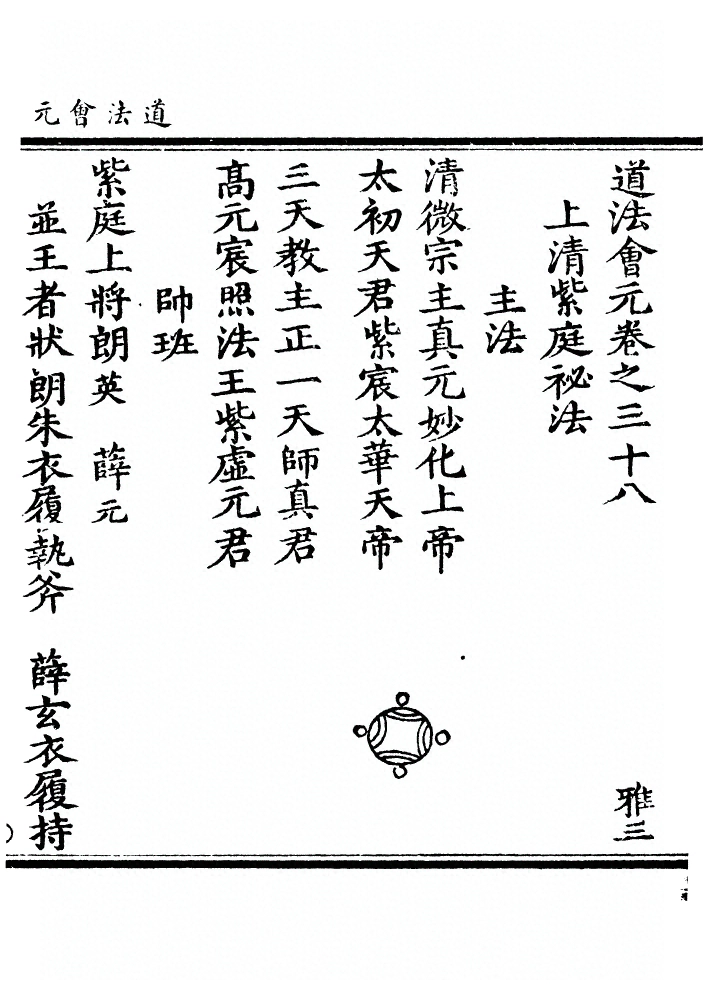 道法會元
道法會元卷之三十八　雅三
上清紫庭祕法
主法
清微宗主真元妙化上帝
太初天君紫宸太華天帝
三天教主正一天師真君
高元宸照法王紫虛元君
帥班
紫庭上將朗英　薛元
並王者狀朗朱衣履執斧　薛玄衣履持